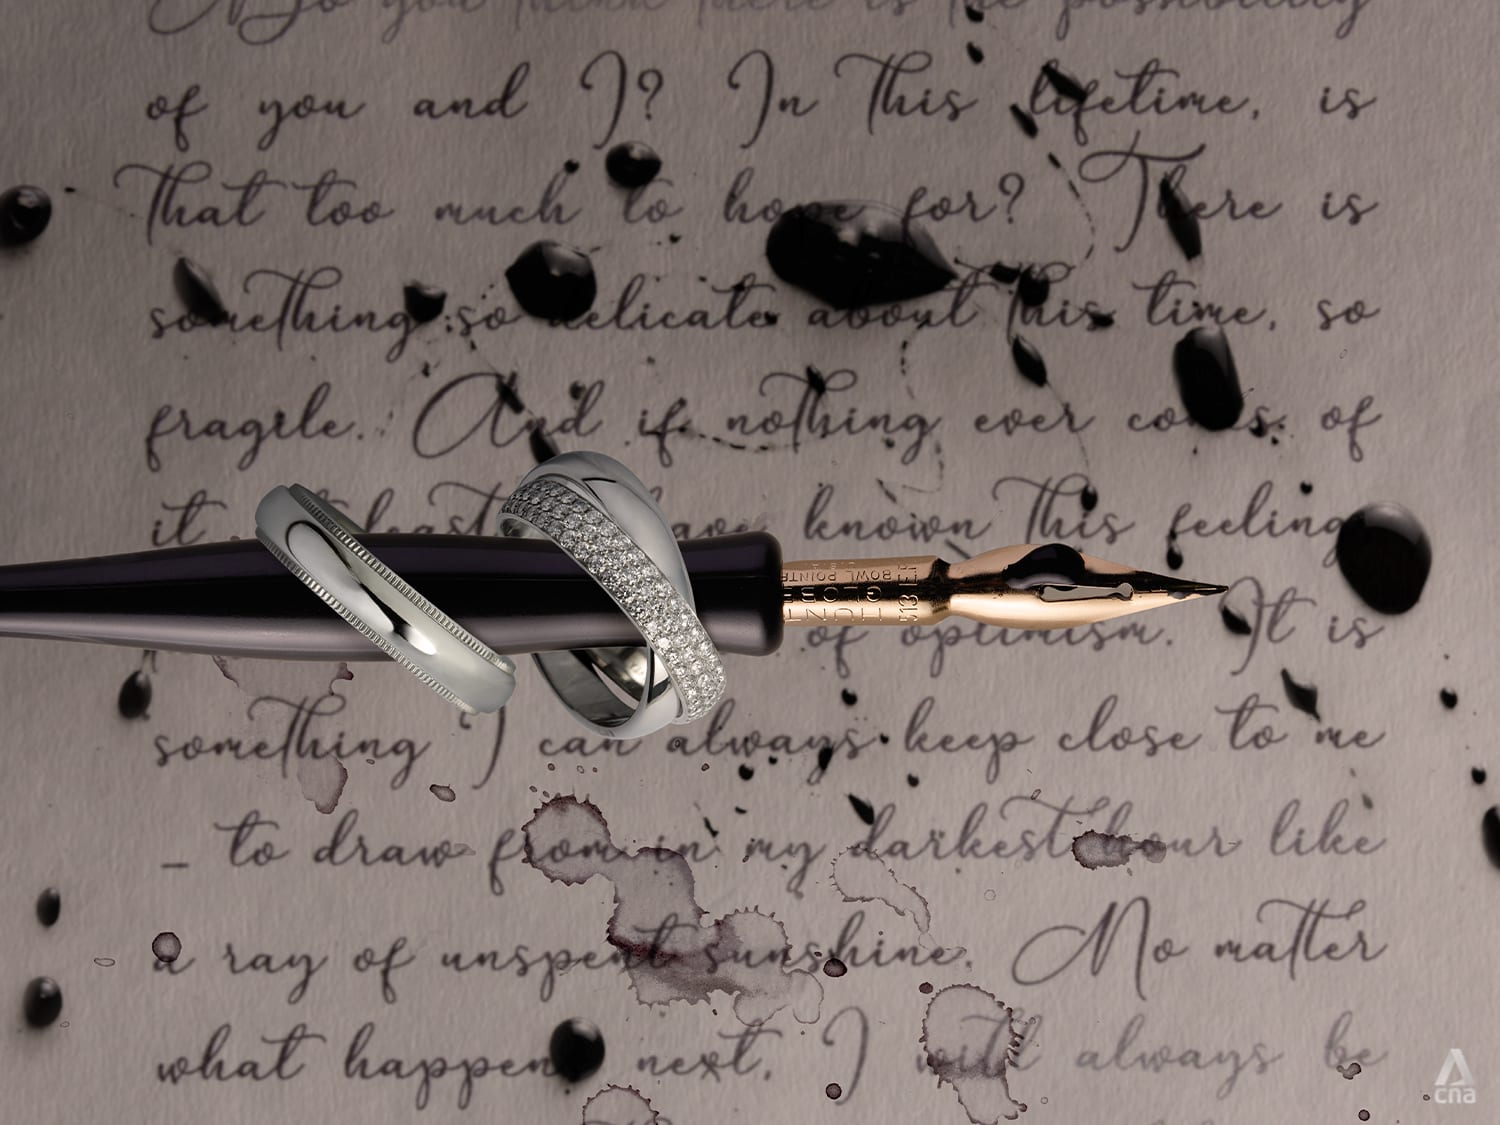 Do you think there is the possibility
of you and I? In this lifetime, is
that too much to hope for? There is
something so delicate about this time, so
fragile. And if nothing ever comes of
it known this feeling
of optimism. It is
something I can always keep close to me
– to draw from in my darkest hour like
a ray of unspent sunshine. No matter
what happens next, I will always be
BOWL POINTE
513 EF
cna